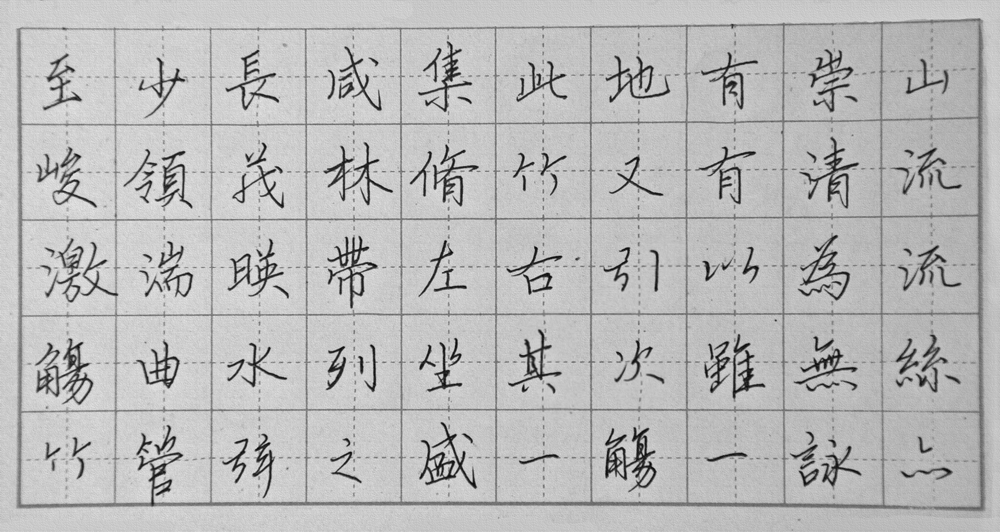 至少長咸集此地有崇山
峻領茂林脩竹又有清流
激湍暎帶左右引以為流
觴曲水列坐其次雖無絲
竹管弦之盛一觴一詠亦